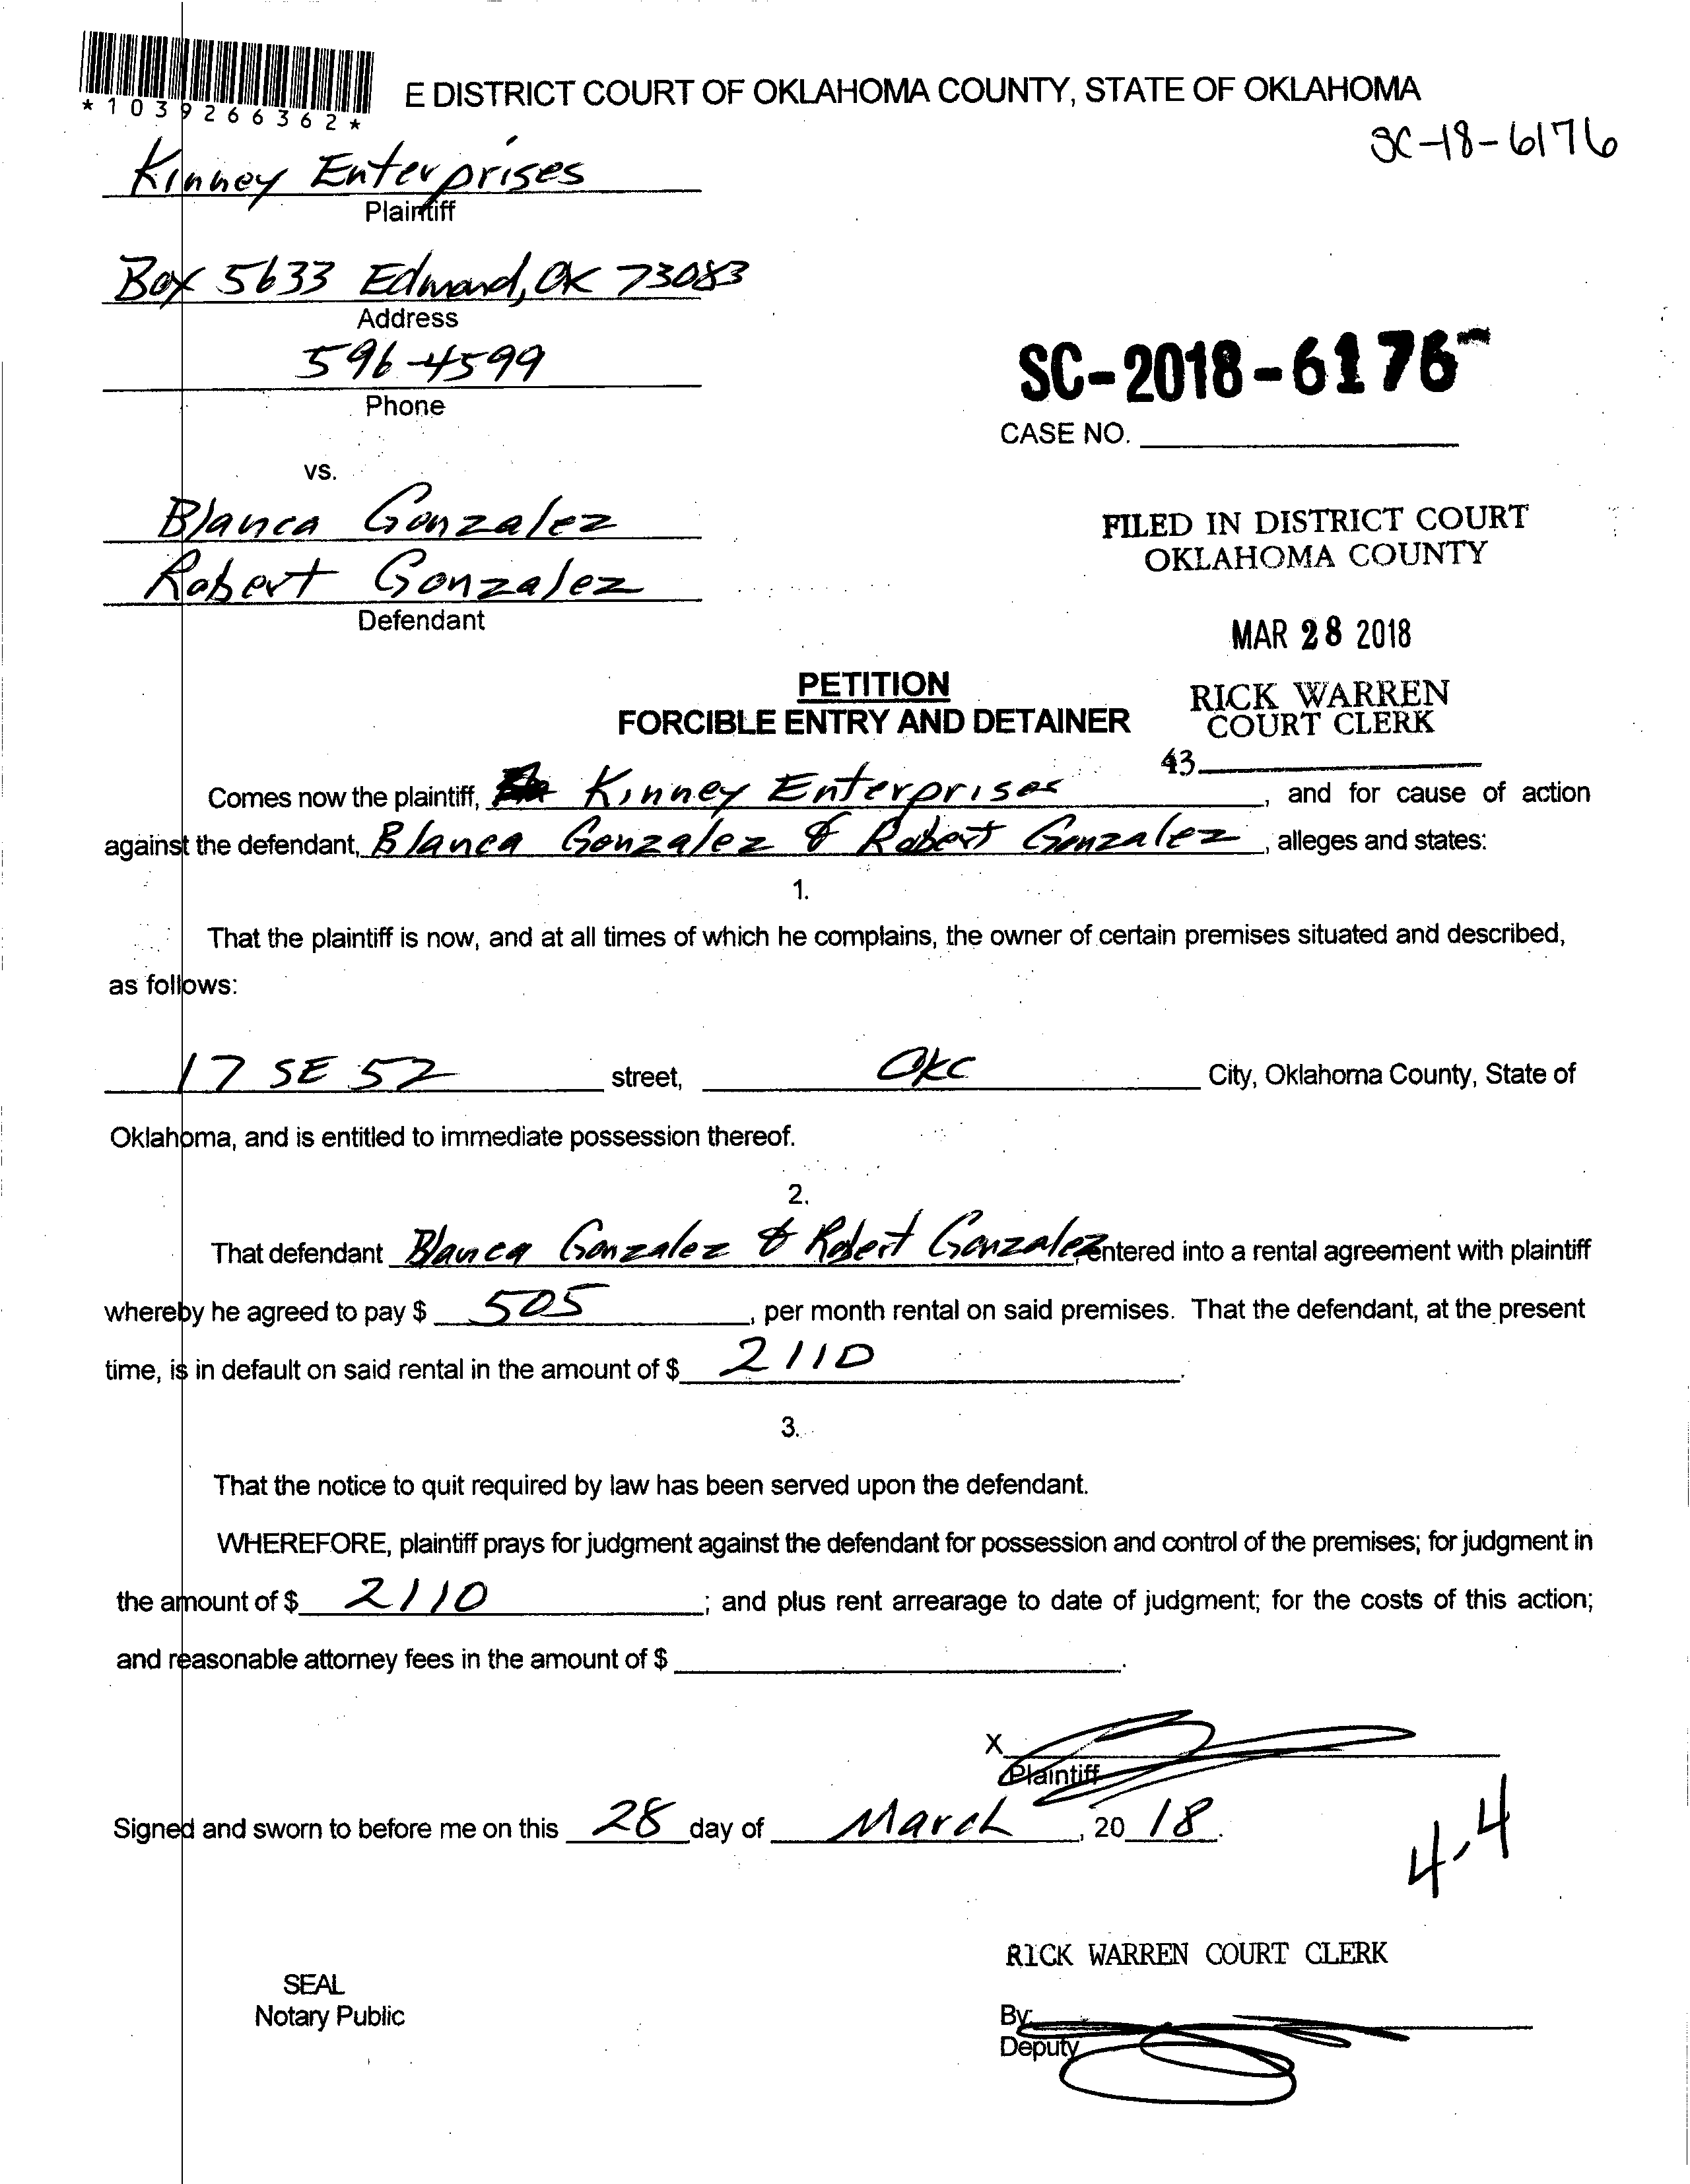 *1039266362*
E DISTRICT COURT OF OKLAHOMA COUNTY, STATE OF OKLAHOMA
SC-18-6176
Kinney Enterprises
Plaintiff
Box 5633 Edmond, OK 73083
Address
596-4599
Phone
SC-2018-6176
CASE NO.
vs.
Blanca Gonzalez
Robert Gonzalez
Defendant
FILED IN DISTRICT COURT
OKLAHOMA COUNTY
MAR 28 2018
RICK WARREN
COURT CLERK
43
PETITION
FORCIBLE ENTRY AND DETAINER
Comes now the plaintiff, Kinney Enterprises, and for cause of action
against the defendant, Blanca Gonzalez & Robert Gonzalez, alleges and states:
1.
That the plaintiff is now, and at all times of which he complains, the owner of certain premises situated and described,
as follows:
17 SE 52 street, OKC City, Oklahoma County, State of
Oklahoma, and is entitled to immediate possession thereof.
2.
That defendant Blanca Gonzalez & Robert Gonzalez, entered into a rental agreement with plaintiff
whereby he agreed to pay $ 505, per month rental on said premises. That the defendant, at the present
time, is in default on said rental in the amount of $ 2110.
3.
That the notice to quit required by law has been served upon the defendant.
WHEREFORE, plaintiff prays for judgment against the defendant for possession and control of the premises; for judgment in
the amount of $ 2110; and plus rent arrearage to date of judgment; for the costs of this action;
and reasonable attorney fees in the amount of $ .
X
Plaintiff
Signed and sworn to before me on this 28 day of March, 20 18.
4-4
RICK WARREN COURT CLERK
SEAL
Notary Public
By:
Deputy